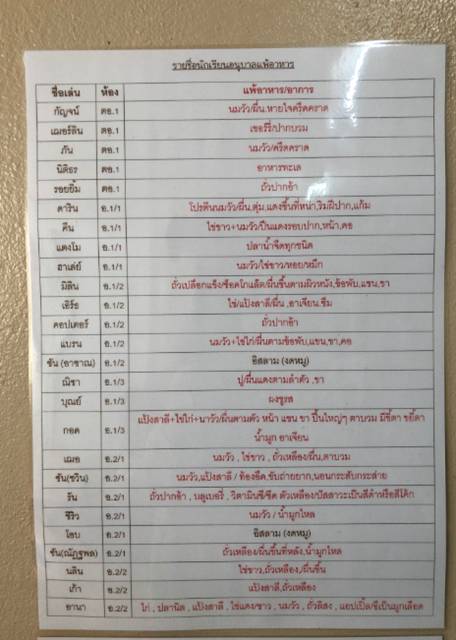 รายชื่อนักเรียนอนุบาลแพ้อาหาร
ชื่อเล่น ห้อง แพ้อาหาร/อาการ
กัญจน์ ตอ.1 นมวัว/ผื่น.หายใจครืดคราด
เฌอร์ลิน ตอ.1 เชอร์รี่/ปากบวม
ภัน ตอ.1 นมวัว/ครืดคราด
นิติธร ตอ.1 อาหารทะเล
รอยยิ้ม ตอ.1 ถั่วปากอ้า
คาริน อ.1/1 โปรตีนนมวัว/ผื่น,ตุ่ม,แดงขึ้นที่หน้า,ริมฝีปาก,แก้ม
คีน อ.1/1 ไข่ขาว+นมวัว/ปื้นแดงรอบปาก,หน้า,คอ
แตงโม อ.1/1 ปลาน้ำจืดทุกชนิด
ฮาเล่ย์ อ.1/1 นมวัว/ไข่ขาว/หอย/หมึก
มิลิน อ.1/2 ถั่วเปลือกแข็ง/ช็อคโกแล็ต/ผื่นขึ้นตามผิวหนัง,ข้อพับ,แขน,ขา
เธียร์ อ.1/2 ไข่/แป้งสาลี/ผื่น ,อาเจียน,ซึม
คอปเตอร์ อ.1/2 ถั่วปากอ้า
แบรน อ.1/2 นมวัว+ไข่ไก่/ผื่นตามข้อพับ,แขน,ขา,คอ
ชัน (อาชาณ) อ.1/2 อิสลาม (งดหมู)
ณิชา อ.1/3 ปู/ผื่นแดงตามลำตัว ,ขา
บุณย์ อ.1/3 ผงชูรส
กอด อ.1/3 แป้งสาลี+ไข่ไก่+นาวัว/ผื่นตามตัว หน้า แขน ขา ปื้นใหญ่ๆ ตาบวม มีขี้ตา ขยี้ตา
น้ำมูก อาเจียน
เฌอ อ.2/1 นมวัว , ไข่ขาว , ถั่วเหลือง/ผื่น,ตาบวม
ชัน(ชวิน) อ.2/1 นมวัว,แป้งสาลี / ท้องอืด,ขับถ่ายยาก,นอนกระสับกระส่าย
รัน อ.2/1 ถั่วปากอ้า , บลูเบอรี่ , วิตามินซี/ซีด ตัวเหลือง/ปัสสาวะเป็นสีดำหรือสีโค้ก
ชีวิว อ.2/1 นมวัว / น้ำมูกไหล
โอบ อ.2/1 อิสลาม (งดหมู)
ชัน(ณัฏฐพล) อ.2/1 ถั่วเหลือง/ผื่นขึ้นที่หลัง,น้ำมูกไหล
นลิน อ.2/2 ไข่ขาว,ถั่วเหลือง,/ผื่นขึ้น
เก้า อ.2/2 แป้งสาลี,ถั่วเหลือง
อานา อ.2/2 ไก่ , ปลานิล , แป้งสาลี , ไข่แดง/ขาว , นมวัว , ถั่วลิสง , แอปเปิ้ล/ขี้เป็นมูกเลือด